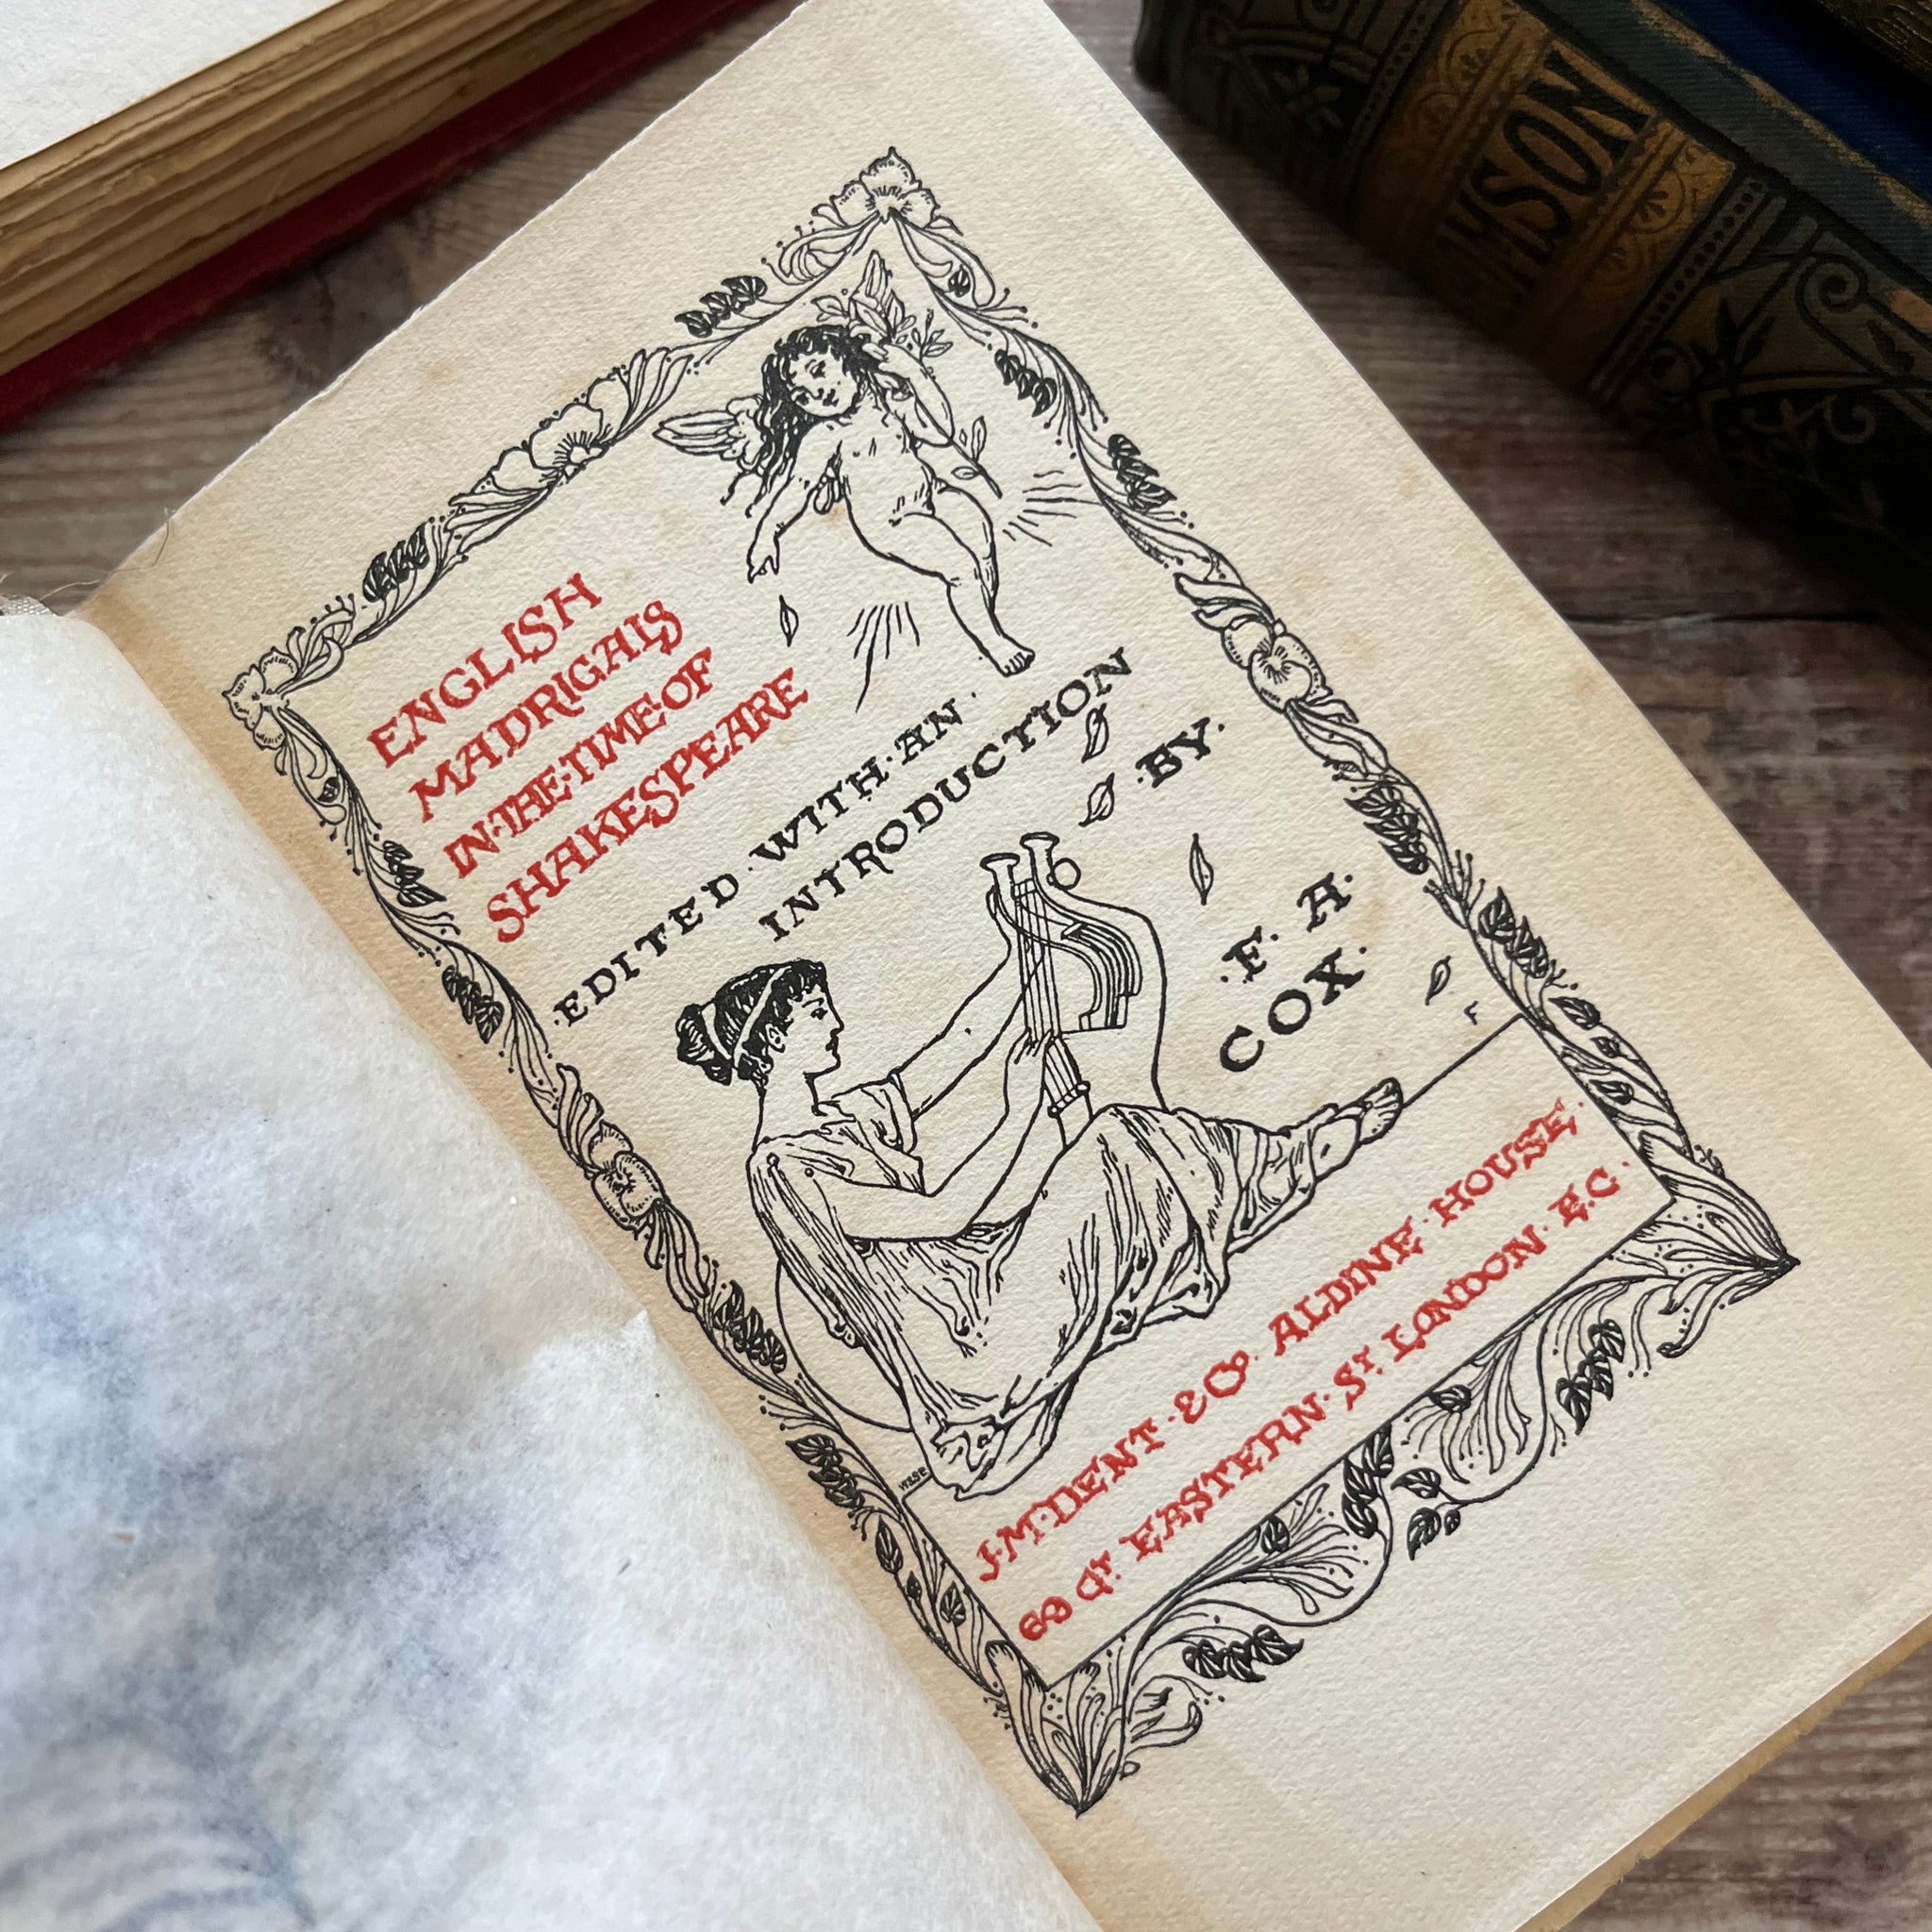 ENGLISH
MADRIGALS
IN·THE·TIME·OF
SHAKESPEARE
·EDITED·WITH·AN·
INTRODUCTION
·BY·
·F. A.
COX.
J·M·DENT·&Co· ALDINE·HOUSE·
69 Gt. EASTERN·St. LONDON·E.C.